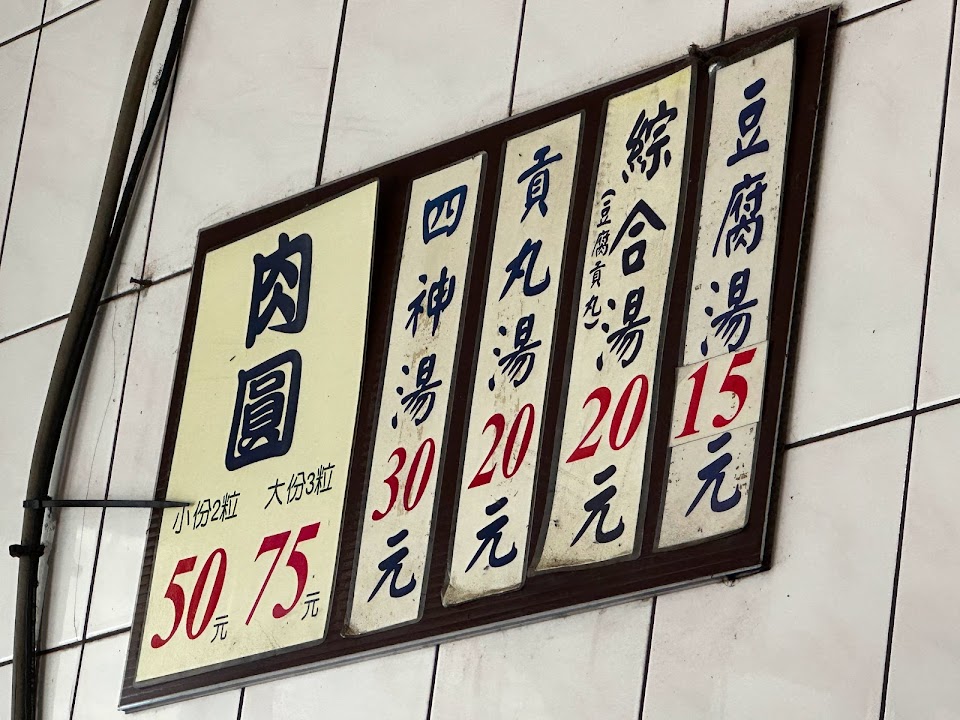 豆腐湯15元
綜合湯20元
(豆腐貢丸)
貢丸湯20元
四神湯30元
肉圓
大份3粒
75元
小份2粒
50元